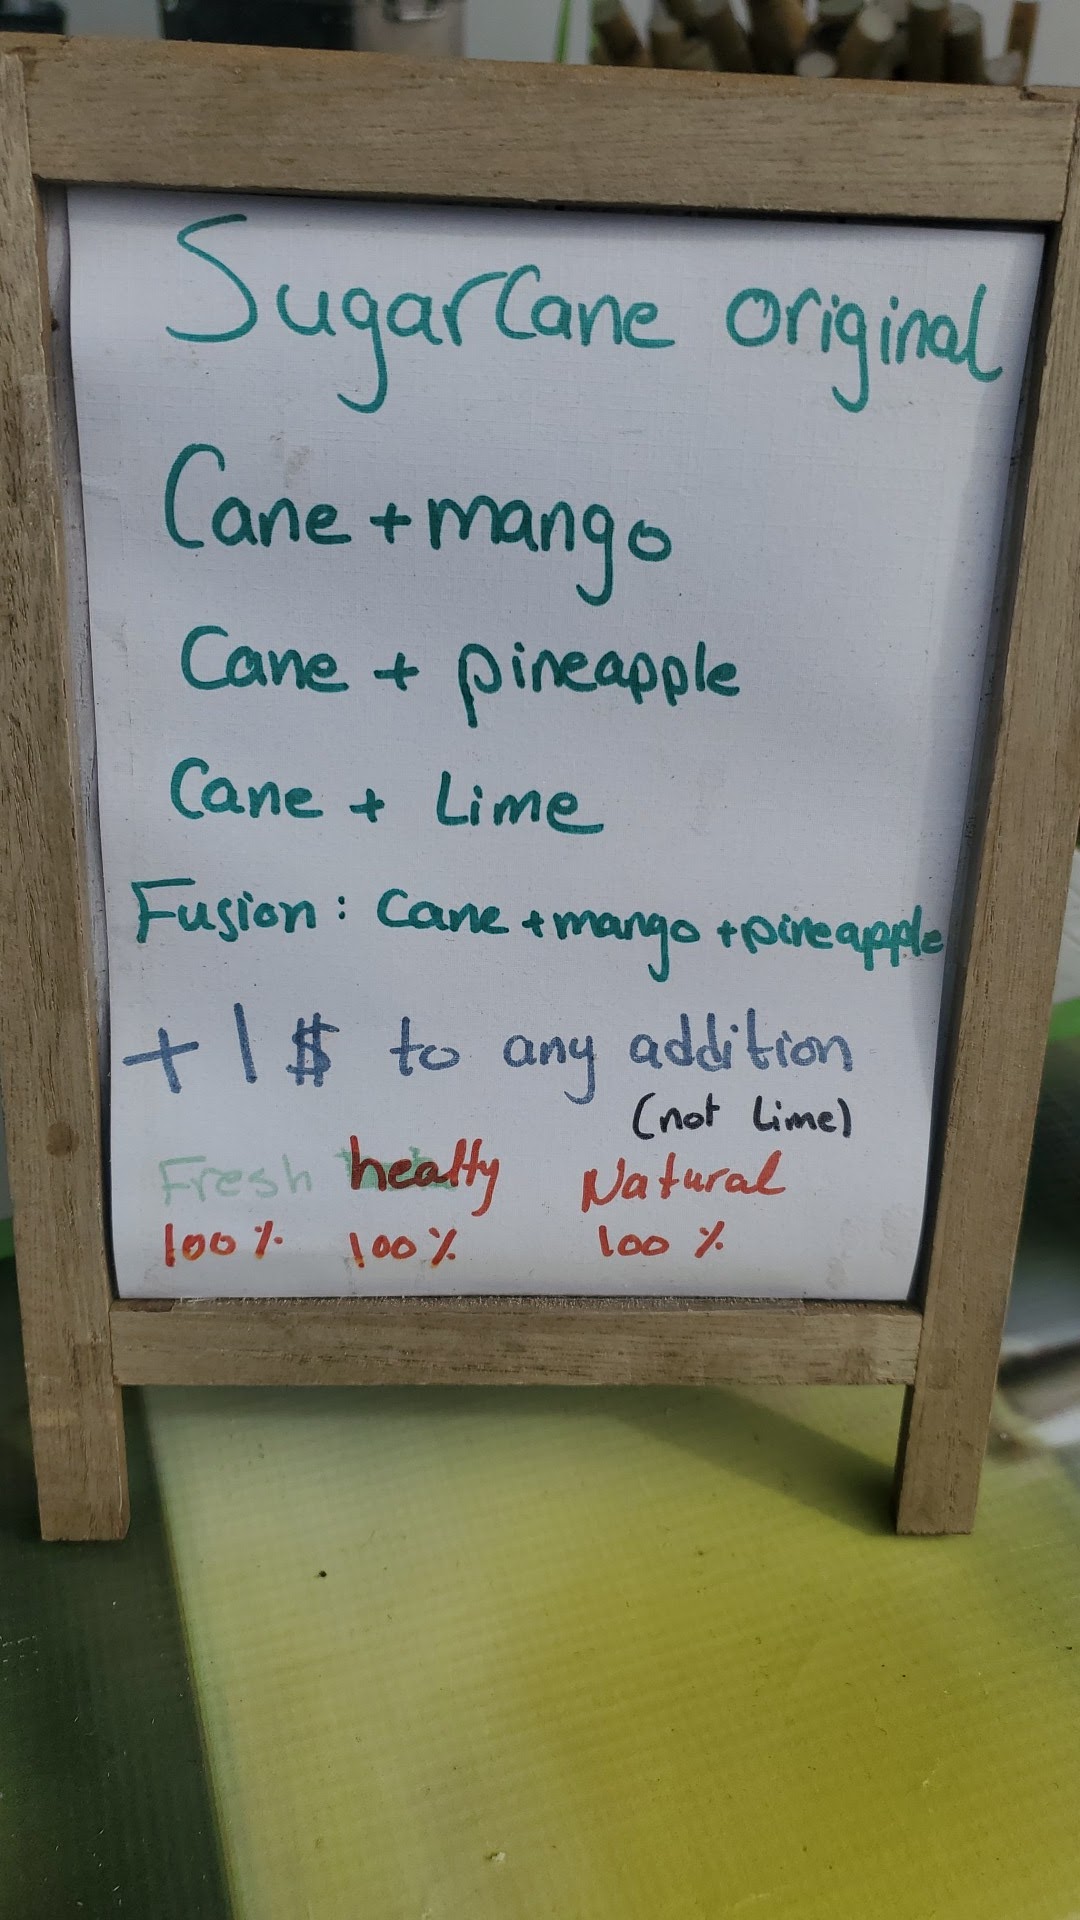 SugarCane original
Cane + mango
Cane + pineapple
Cane + Lime
Fusion: Cane + mango + pineapple
+ 1 $ to any addition
(not Lime)
Fresh healty Natural
100% 100% 100%